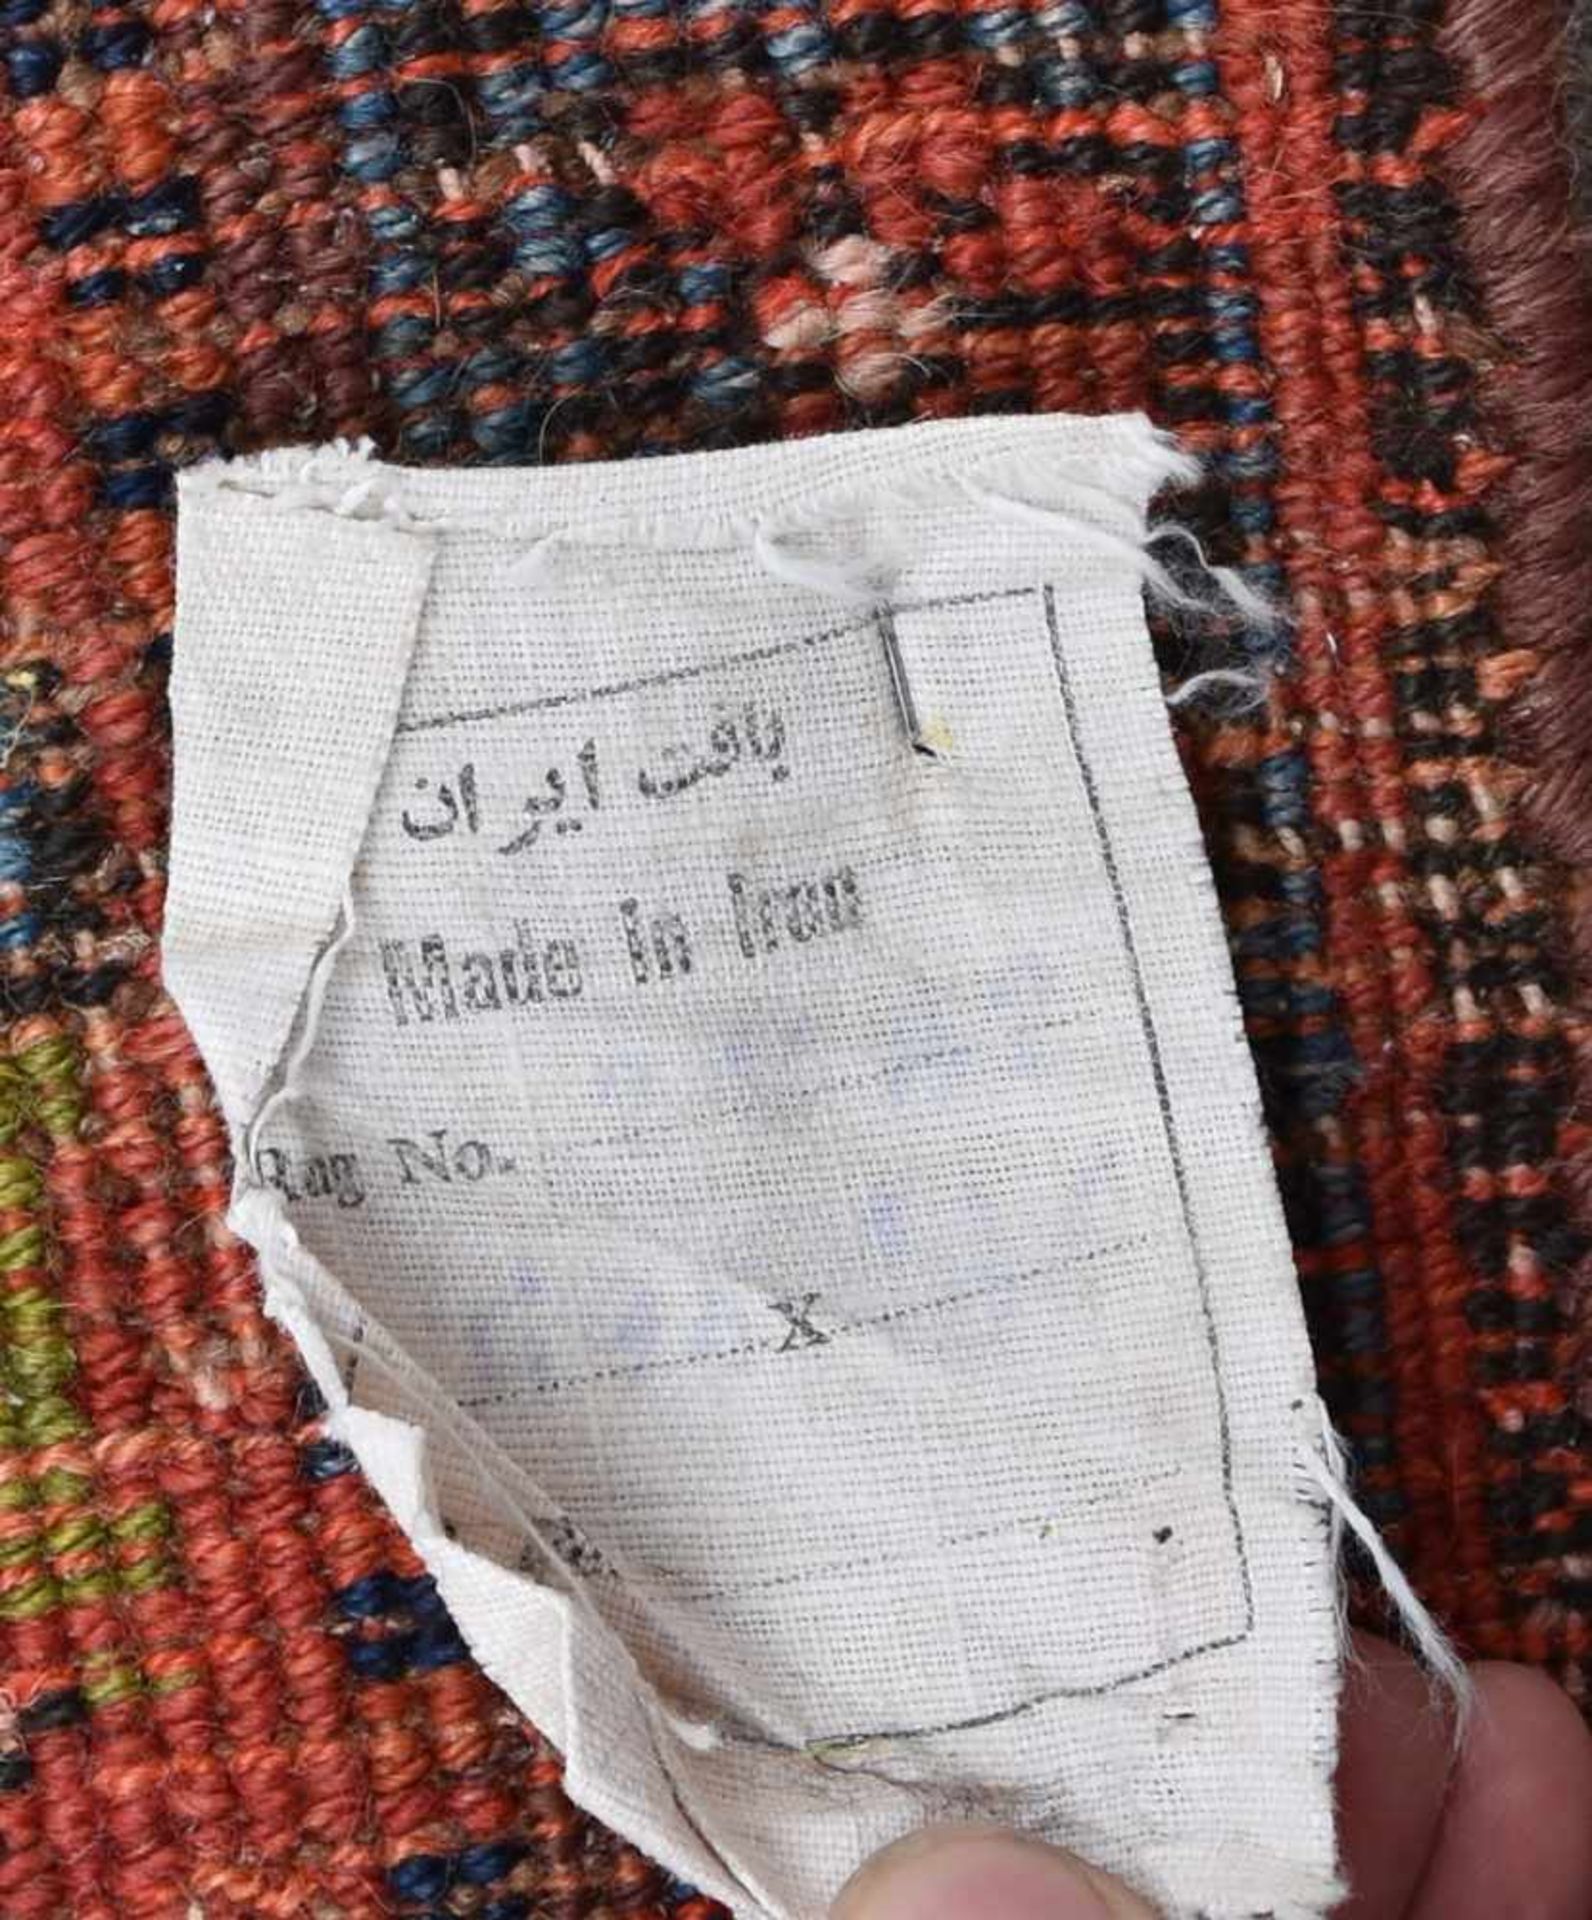 بافت ایران
Made in Iran
Rug No.
X